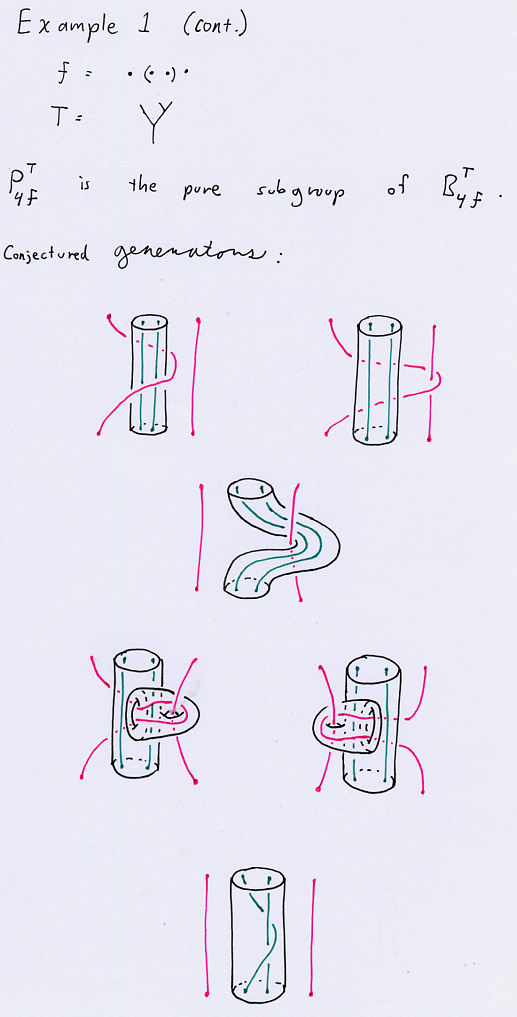 Example 1 (cont.)
f = · (· ·) ·
T =
P_{4f}^T is the pure subgroup of B_{4f}^T.
Conjectured generators: